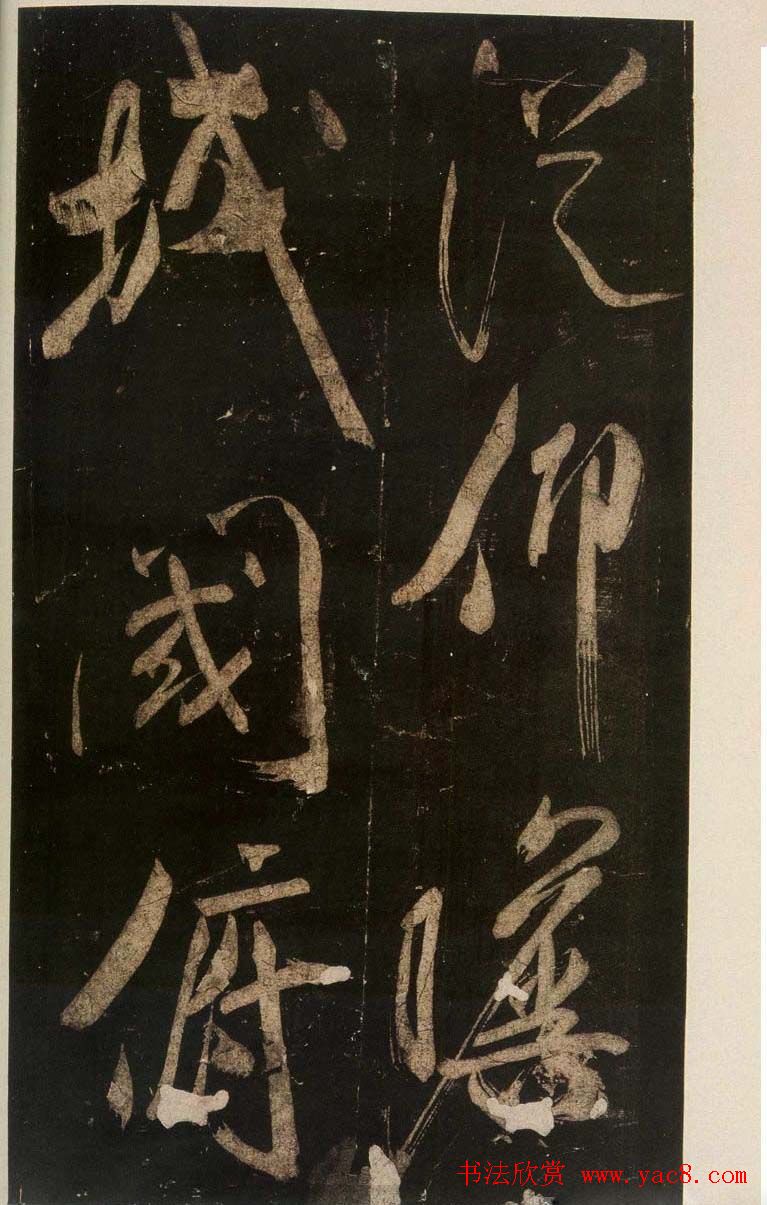 從仰瞻
城闕俯
书法欣赏 www.yac8.com